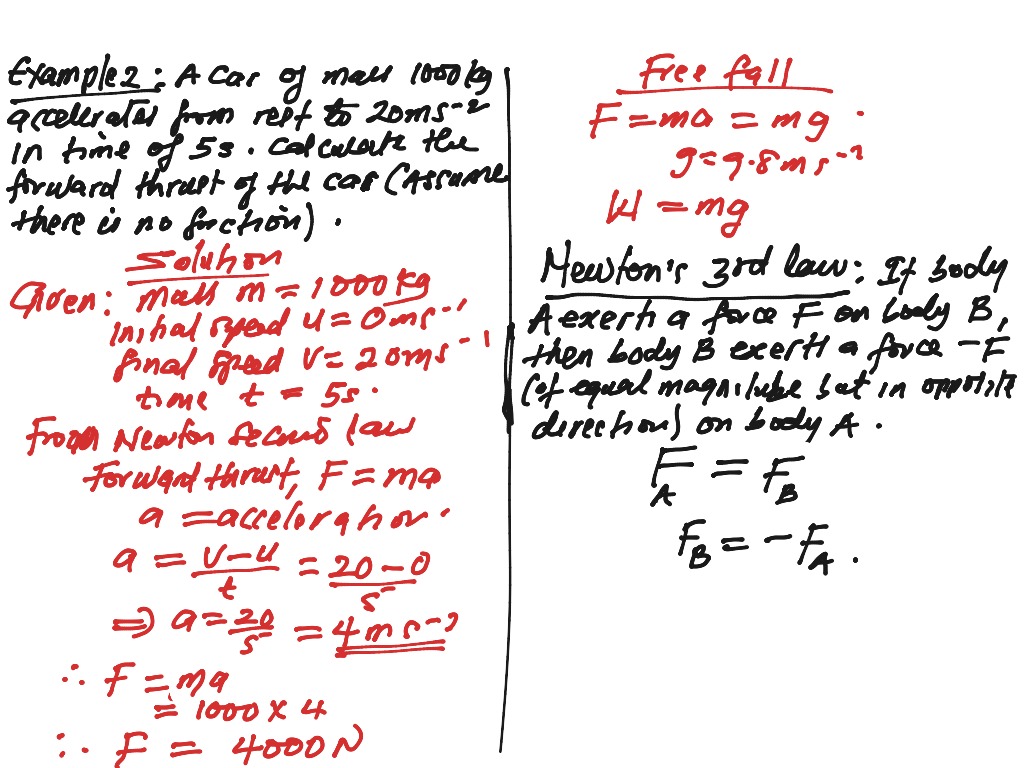 Example 2: A car of mass 1000kg
accelerates from rest to 20ms⁻²
in time of 5s. Calculate the
forward thrust of the car (Assume
there is no friction).
Solution
Given: mass m = 1000kg
initial speed u = 0ms⁻¹
final speed v = 20ms⁻¹
time t = 5s.
From Newton Second law
Forward thrust, F = ma
a = acceleration.
a = v-u/t = 20-0/5
⇒ a = 20/5 = 4ms⁻²
∴ F = ma
= 1000 x 4
∴ F = 4000N
Free fall
F = ma = mg.
g = 9.8ms⁻²
W = mg
Newton's 3rd law: If body
A exert a force F on body B,
then body B exert a force -F
(of equal magnitude but in opposite
direction) on body A.
F_A = F_B
F_B = -F_A.